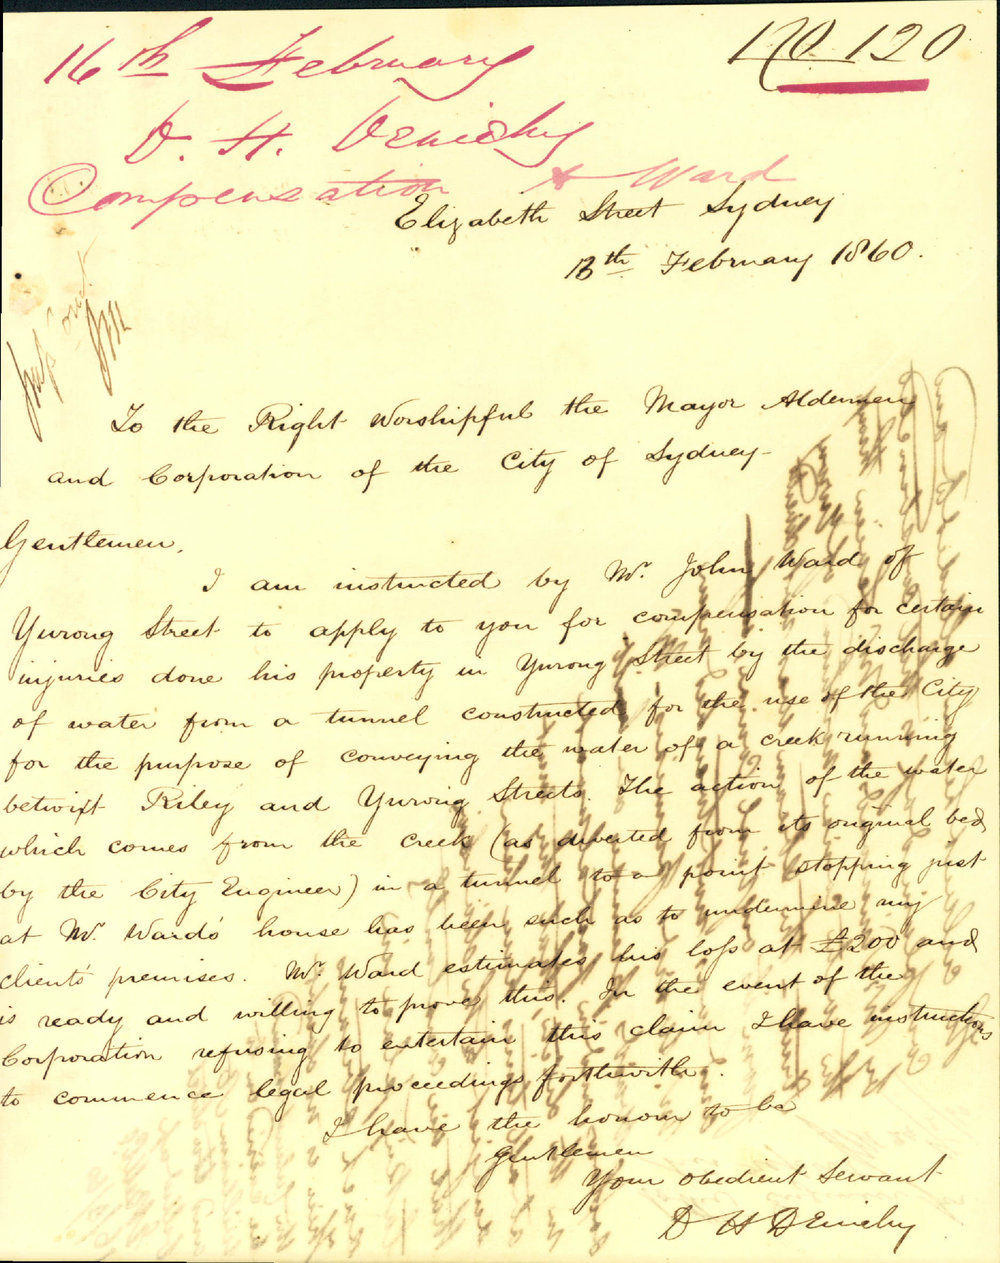 No 120
16th February
D. H. Deniehy
Compensation A Ward
Elizabeth Street Sydney
13th February 1860.
To the Right Worshipful the Mayor Aldermen
and Corporation of the City of Sydney-
Gentlemen,
I am instructed by Mr. John Ward of
Yurong Street to apply to you for compensation for certain
injuries done his property in Yurong Street by the discharge
of water from a tunnel constructed for the use of the City
for the purpose of conveying the water of a creek running
betwixt Riley and Yurong Streets. The action of the water
which comes from the creek (as diverted from its original bed
by the City Engineer) in a tunnel to a point stopping just
at Mr. Ward's house has been such as to undermine my
client's premises. Mr. Ward estimates his loss at £200 and
is ready and willing to prove this. In the event of the
Corporation refusing to entertain this claim I have instructions
to commence legal proceedings forthwith.
I have the honour to be
Gentlemen
Your obedient Servant
D H Deniehy